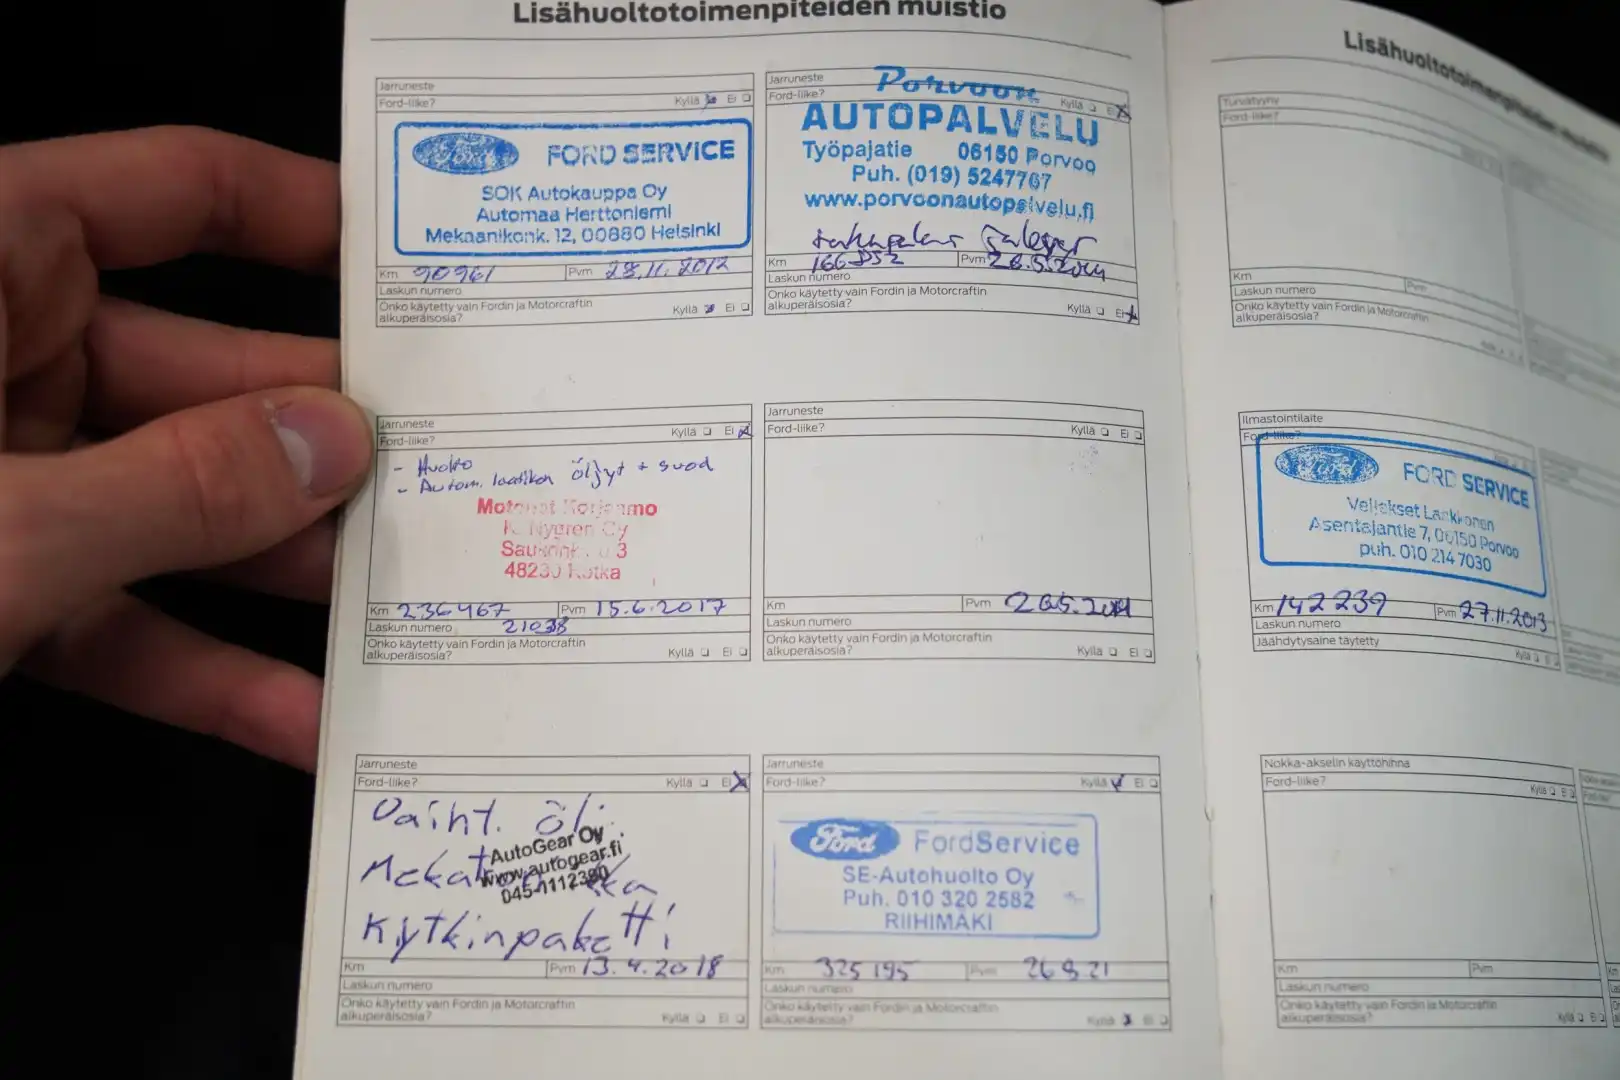 Lisähuoltotoimenpiteiden muistio
Jarruneste
Ford-liike? Kyllä Ei
Ford FORD SERVICE
SOK Autokauppa Oy
Automaa Herttoniemi
Mekaanikonk. 12, 00880 Helsinki
Km 90961 Pvm 28.11.2012
Laskun numero
Onko käytetty vain Fordin ja Motorcraftin
alkuperäisosia? Kyllä Ei
Jarruneste
Ford-liike? Kyllä Ei
Porvoon
AUTOPALVELU
Työpajatie 06150 Porvoo
Puh. (019) 5247767
www.porvoonautopalvelu.fi
Km 166852 Pvm 26.5.2014
Laskun numero
Onko käytetty vain Fordin ja Motorcraftin
alkuperäisosia? Kyllä Ei
Jarruneste
Ford-liike? Kyllä Ei
- Huolto
- Autom. laatikon öljyt + suod
Motonat Korjaamo
K. Nygren Oy
3
48230 Kotka
Km 236467 Pvm 15.6.2017
Laskun numero 21038
Onko käytetty vain Fordin ja Motorcraftin
alkuperäisosia? Kyllä Ei
Jarruneste
Ford-liike? Kyllä Ei
Km Pvm 26.5.2014
Laskun numero
Onko käytetty vain Fordin ja Motorcraftin
alkuperäisosia? Kyllä Ei
Jarruneste
Ford-liike? Kyllä Ei
Vaiht. öl.
AutoGear Oy
www.autogear.fi
045-1112380
Kytkinpaketti
Km Pvm 13.4.2018
Laskun numero
Onko käytetty vain Fordin ja Motorcraftin
alkuperäisosia? Kyllä Ei
Jarruneste
Ford-liike? Kyllä Ei
Ford FordService
SE-Autohuolto Oy
Puh. 010 320 2582
RIIHIMÄKI
Km 325195 Pvm 26.8.21
Laskun numero
Onko käytetty vain Fordin ja Motorcraftin
alkuperäisosia? Kyllä Ei
Lisähuoltotoimenpiteiden muistio
Turvatyyny
Ford-liike?
Km Pvm
Laskun numero
Onko käytetty vain Fordin ja Motorcraftin
alkuperäisosia?
Ilmastointilaite
Ford-liike?
Ford FORD SERVICE
Veljekset Laakkonen
Asentajantie 7, 06150 Porvoo
puh. 010 214 7030
Km 142239 Pvm 27.11.2013
Laskun numero
Jäähdytysaine täytetty Kyllä Ei
Nokka-akselin käyttöhihna
Ford-liike? Kyllä Ei
Km Pvm
Laskun numero
Onko käytetty vain Fordin ja Motorcraftin
alkuperäisosia? Kyllä Ei